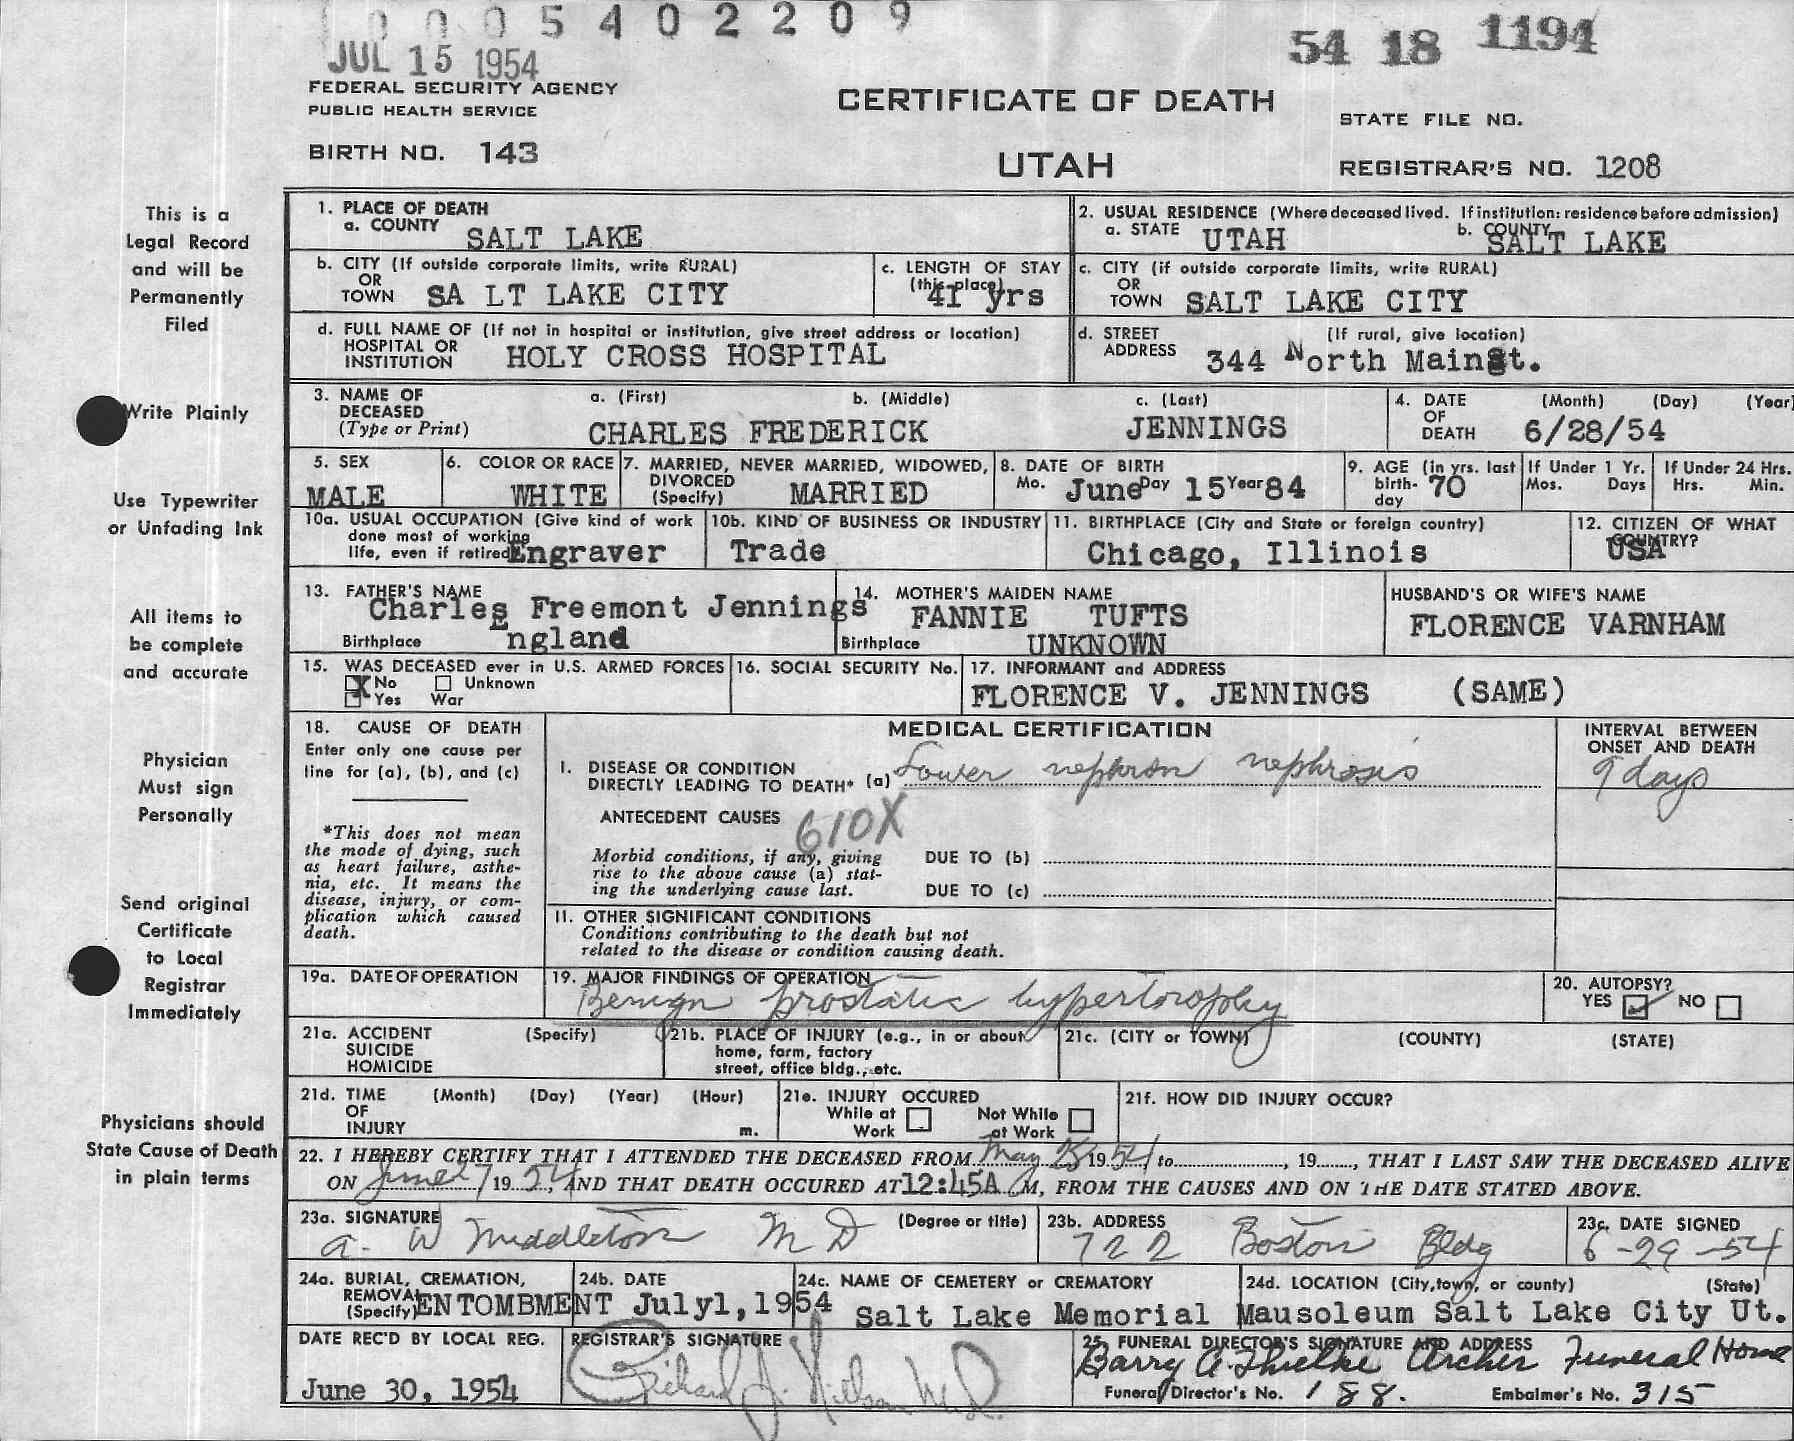 0005402209
JUL 15 1954
54 18 1194
FEDERAL SECURITY AGENCY
PUBLIC HEALTH SERVICE
CERTIFICATE OF DEATH
STATE FILE NO.
BIRTH NO. 143
UTAH
REGISTRAR'S NO. 1208
This is a
Legal Record
and will be
Permanently
Filed
Write Plainly
Use Typewriter
or Unfading Ink
All items to
be complete
and accurate
Physician
Must sign
Personally
Send original
Certificate
to Local
Registrar
Immediately
Physicians should
State Cause of Death
in plain terms
1. PLACE OF DEATH
a. COUNTY SALT LAKE
2. USUAL RESIDENCE (Where deceased lived. If institution: residence before admission)
a. STATE UTAH b. COUNTY SALT LAKE
b. CITY (If outside corporate limits, write RURAL)
OR
TOWN SA LT LAKE CITY
c. LENGTH OF STAY
(this place)
41 yrs
c. CITY (if outside corporate limits, write RURAL)
OR
TOWN SALT LAKE CITY
d. FULL NAME OF (If not in hospital or institution, give street address or location)
HOSPITAL OR
INSTITUTION HOLY CROSS HOSPITAL
d. STREET (If rural, give location)
ADDRESS 344 North Main St.
3. NAME OF
DECEASED
(Type or Print)
a. (First) b. (Middle) c. (Last)
CHARLES FREDERICK JENNINGS
4. DATE (Month) (Day) (Year)
OF
DEATH 6/28/54
5. SEX
MALE
6. COLOR OR RACE
WHITE
7. MARRIED, NEVER MARRIED, WIDOWED,
DIVORCED
(Specify) MARRIED
8. DATE OF BIRTH
Mo. June Day 15 Year 84
9. AGE (in yrs. last
birth-
day 70
If Under 1 Yr.
Mos. Days
If Under 24 Hrs.
Hrs. Min.
10a. USUAL OCCUPATION (Give kind of work
done most of working
life, even if retired Engraver
10b. KIND OF BUSINESS OR INDUSTRY
Trade
11. BIRTHPLACE (City and State or foreign country)
Chicago, Illinois
12. CITIZEN OF WHAT
COUNTRY?
USA
13. FATHER'S NAME
Charles Freemont Jennings
Birthplace England
14. MOTHER'S MAIDEN NAME
FANNIE TUFTS
Birthplace UNKNOWN
HUSBAND'S OR WIFE'S NAME
FLORENCE VARNHAM
15. WAS DECEASED ever in U.S. ARMED FORCES
X No Unknown
Yes War
16. SOCIAL SECURITY No.
17. INFORMANT and ADDRESS
FLORENCE V. JENNINGS (SAME)
18. CAUSE OF DEATH
Enter only one cause per
line for (a), (b), and (c)
*This does not mean
the mode of dying, such
as heart failure, asthe-
nia, etc. It means the
disease, injury, or com-
plication which caused
death.
MEDICAL CERTIFICATION
I. DISEASE OR CONDITION
DIRECTLY LEADING TO DEATH* (a) Lower nephron nephrosis
ANTECEDENT CAUSES 610X
Morbid conditions, if any, giving
rise to the above cause (a) stat-
ing the underlying cause last.
DUE TO (b)
DUE TO (c)
II. OTHER SIGNIFICANT CONDITIONS
Conditions contributing to the death but not
related to the disease or condition causing death.
INTERVAL BETWEEN
ONSET AND DEATH
9 days
19a. DATE OF OPERATION
19. MAJOR FINDINGS OF OPERATION
Benign prostatic hypertrophy
20. AUTOPSY?
YES NO
21a. ACCIDENT (Specify)
SUICIDE
HOMICIDE
21b. PLACE OF INJURY (e.g., in or about
home, farm, factory
street, office bldg., etc.
21c. (CITY or TOWN) (COUNTY) (STATE)
21d. TIME (Month) (Day) (Year) (Hour)
OF
INJURY m.
21e. INJURY OCCURED
While at Work Not While at Work
21f. HOW DID INJURY OCCUR?
22. I HEREBY CERTIFY THAT I ATTENDED THE DECEASED FROM May 25 1954, to, 19, THAT I LAST SAW THE DECEASED ALIVE
ON June 27 1954, AND THAT DEATH OCCURED AT 12:45A M, FROM THE CAUSES AND ON THE DATE STATED ABOVE.
23a. SIGNATURE (Degree or title)
A. W Middleton MD
23b. ADDRESS
722 Boston Bldg
23c. DATE SIGNED
6-29-54
24a. BURIAL, CREMATION,
REMOVAL
(Specify) ENTOMBMENT
24b. DATE
July1, 1954
24c. NAME OF CEMETERY or CREMATORY
Salt Lake Memorial Mausoleum
24d. LOCATION (City, town, or county) (State)
Salt Lake City Ut.
DATE REC'D BY LOCAL REG.
June 30, 1954
REGISTRAR'S SIGNATURE
Richard J. Nilson M.D.
25. FUNERAL DIRECTOR'S SIGNATURE AND ADDRESS
Barry A. Thielke Archer Funeral Home
Funeral Director's No. 188. Embalmer's No. 315